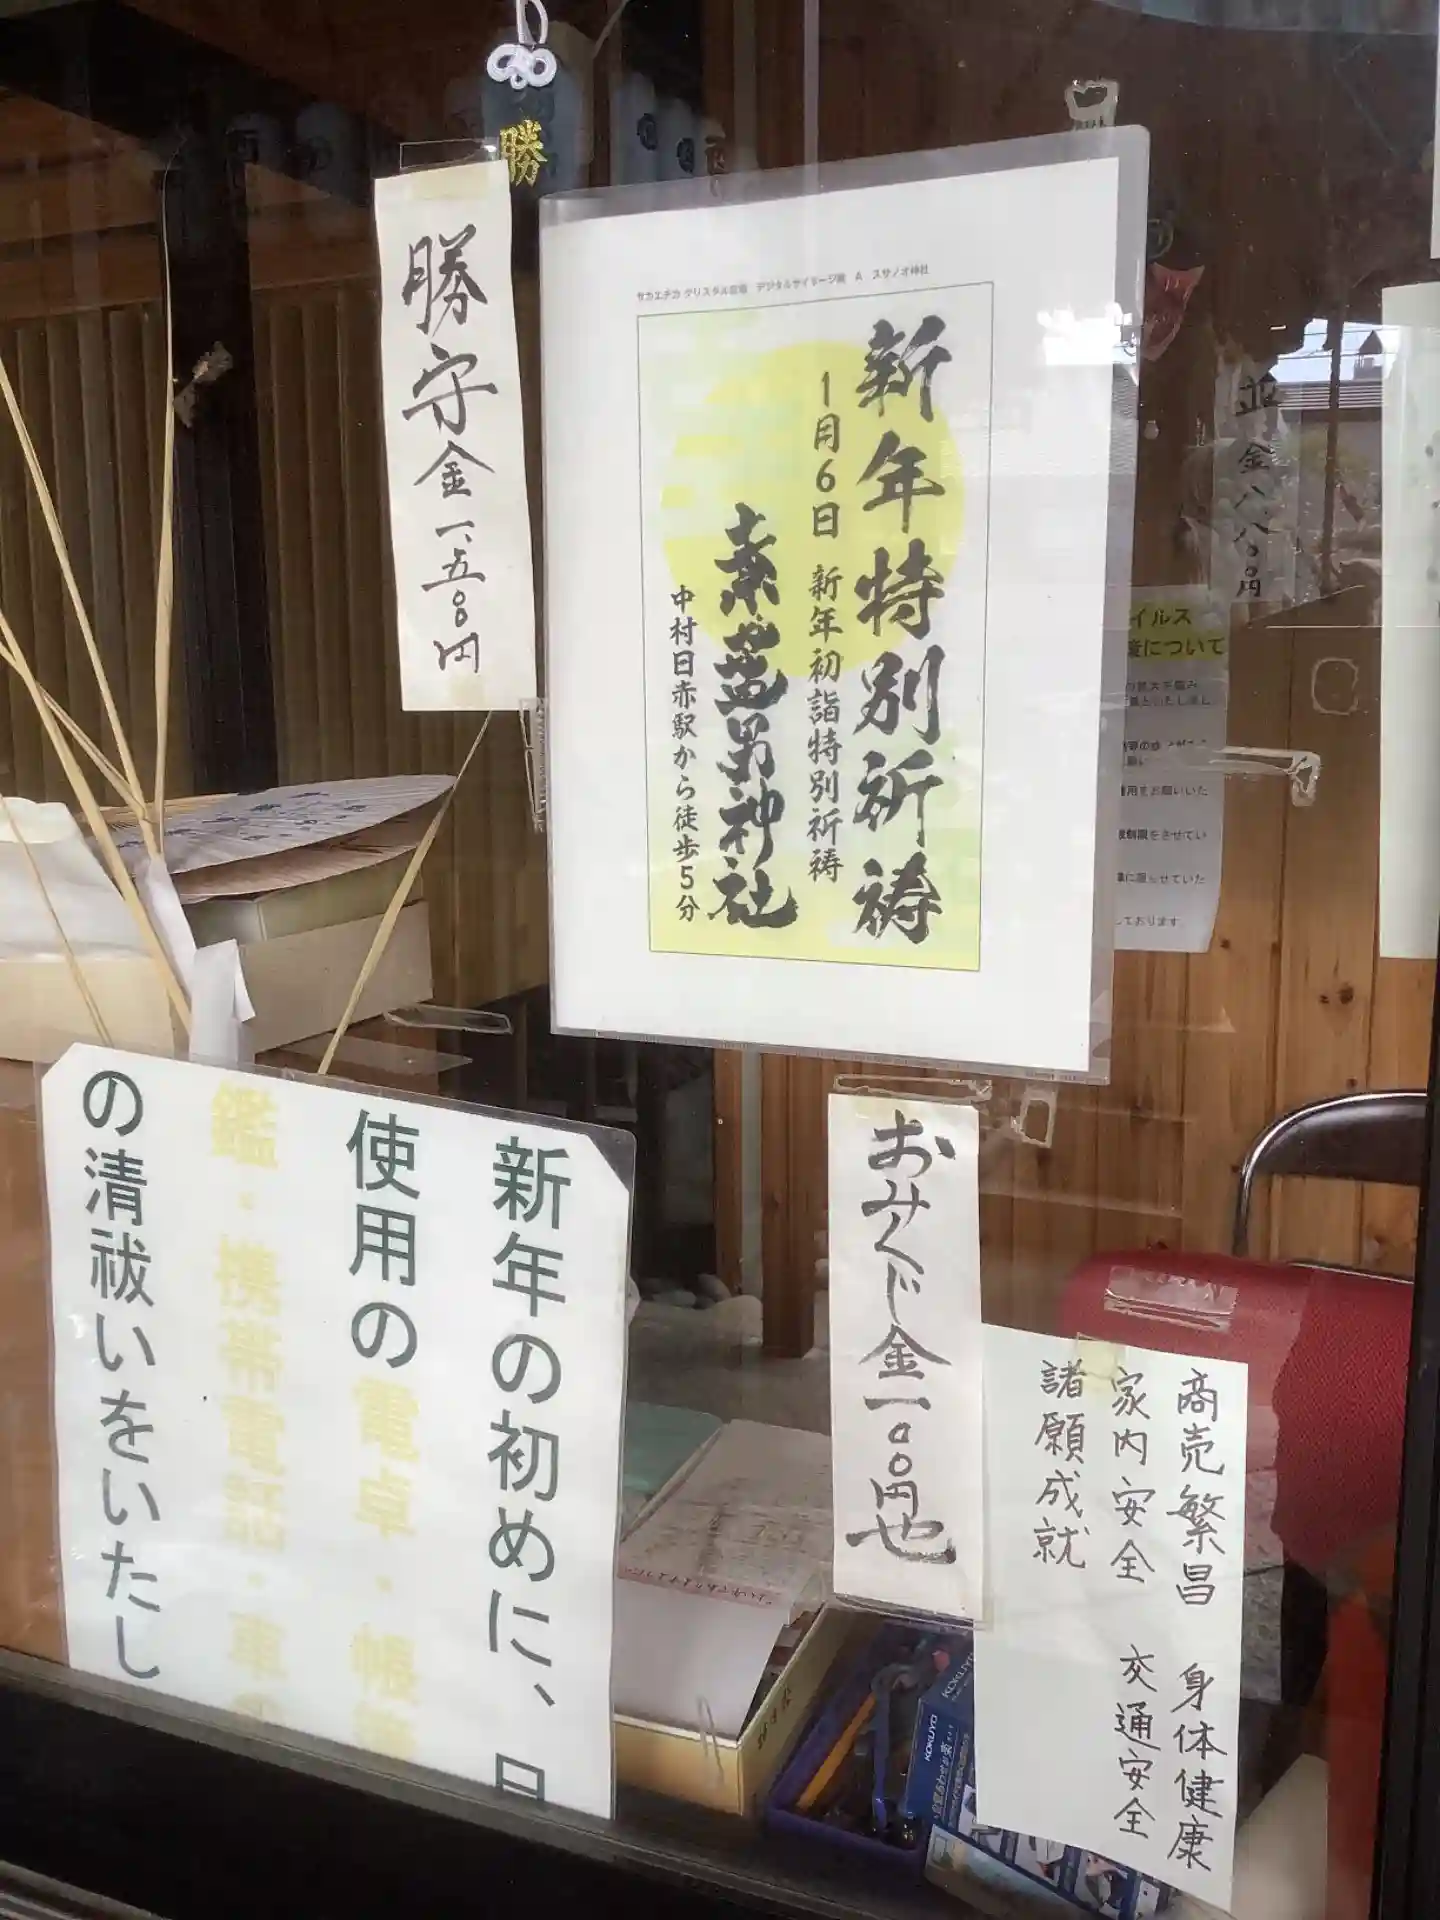 勝
勝守金一、五〇〇円
サカエチカ クリスタル広場 デジタルサイネージ用 A スサノオ神社
新年特別祈祷
1月6日 新年初詣特別祈祷
素盞男神社
中村日赤駅から徒歩5分
金八〇〇円
イルス
について
用をお願いいた
制限をさせてい
に限らせていた
しております
おみくじ金一〇〇円也
商売繁昌 身体健康
家内安全 交通安全
諸願成就
新年の初めに、日
使用の電卓・帳
鑑・携帯電話・車の
の清祓いをいたし
KOKUYO
KOKUYO